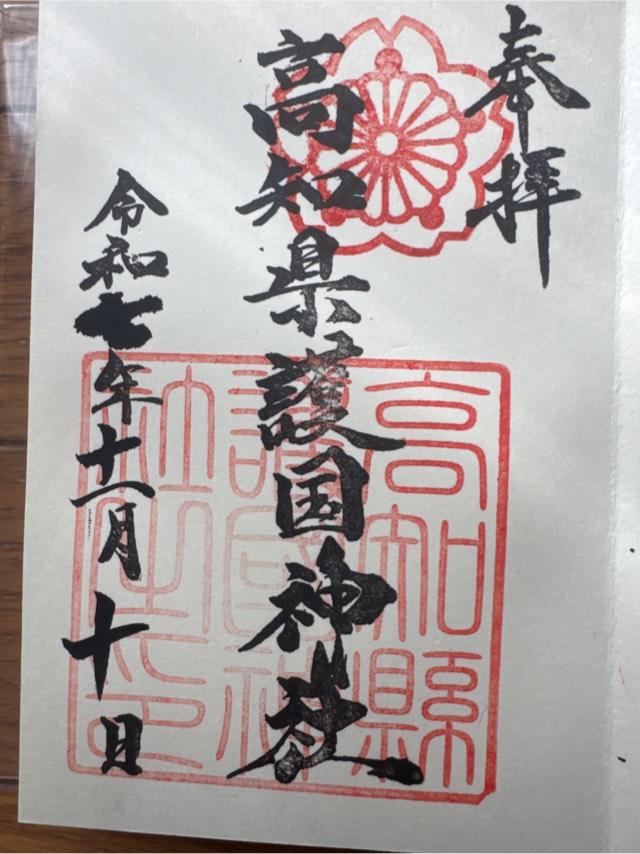 奉拝
高知県護国神社
令和七年十一月十日
高知縣
護國神
社之印